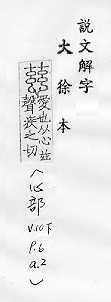 說文解字
大徐本
慈
愛也从心茲
聲疾之切
(心部
V.10下
P.6
a.2)